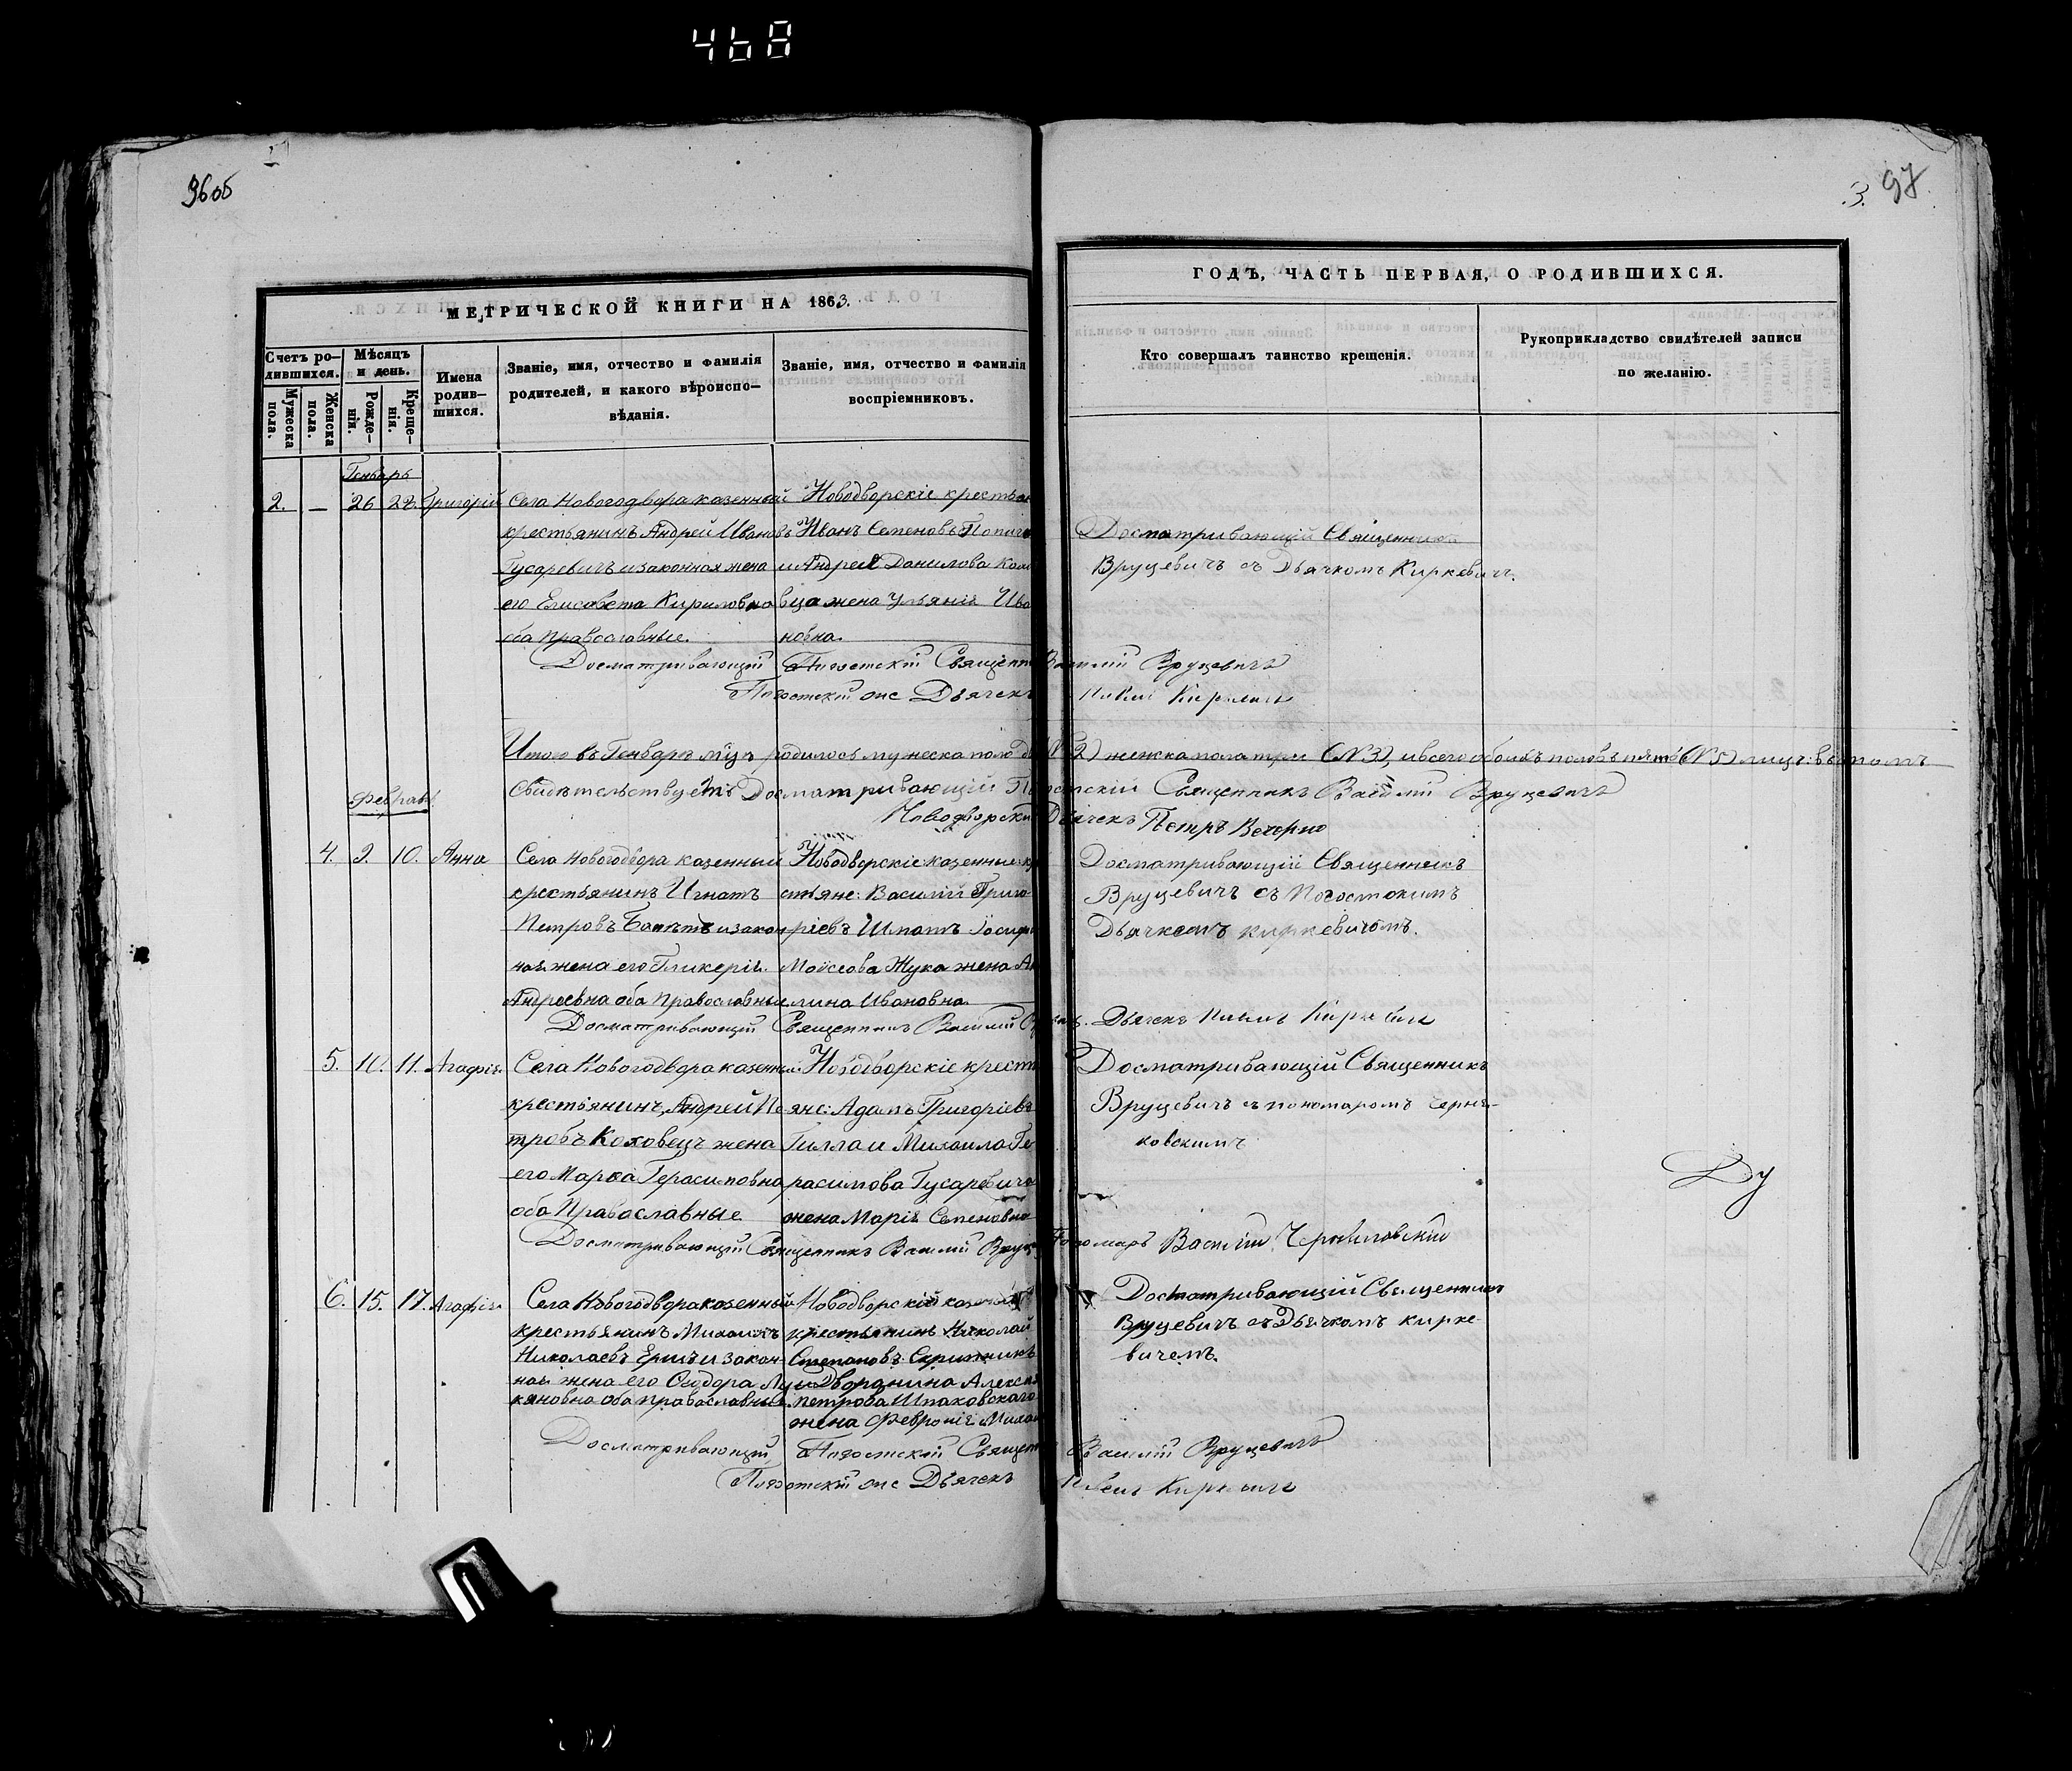 468
96об
3. 97
МЕТРИЧЕСКОЙ КНИГИ НА 1863.
ГОДЪ, ЧАСТЬ ПЕРВАЯ, О РОДИВШИХСЯ.
Счетъ ро-
дившихся.
Мужеска
пола.
Женска
пола.
Мѣсяцъ
и день.
Рожде-
нія.
Креще-
нія.
Имена
родив-
шихся.
Званіе, имя, отчество и фамилія
родителей, и какого вѣроиспо-
вѣданія.
Званіе, имя, отчество и фамилія
воспріемниковъ.
Кто совершалъ таинство крещенія.
Рукоприкладство свидѣтелей записи
по желанію.
Генварь
2. — 26 28. Григорій
Села Новогодвора казенный
крестьянинъ Андрей Ивановъ
Гусаревичъ и законная жена
его Елисавета Кириловна
оба православные.
Новодворскіе крестьян
Иванъ Семеновъ
и Андрея Данилова
вца жена Ульянія Ива
новна.
Досматривающій Священникъ
Вруцевичъ съ Дьячкомъ Киркевич.
Досматривающій Погостскій Священ Василій Вруцевичъ
Погостскій Дьячекъ Киркевичъ
Итого въ Генварѣ мцѣ родилось мужеска пола (№ 2) женска пола три (№ 3), и всего обоихъ половъ пять (№ 5) лицъ: въ томъ
Свидѣтельствуетъ Досматривающій Погостскій Священникъ Василій Вруцевичъ
Новодворскій Дьячекъ Петръ Вечерко
Февраль
4. 9. 10. Анна
Села Новогодвора казенный
крестьянинъ Игнатъ
Петровъ и закон
ная жена его Гликерія
Андреевна оба православные
Новодворскіе казенные кре
стьяне: Василій Григо
ріевъ Шпатъ
Моисеова Жука жена Ак
лина Ивановна
Досматривающій Священникъ
Вруцевичъ съ Погостскимъ
Дьячкомъ Киркевичомъ.
Досматривающій Священникъ Василій Вруцев. Дьячекъ Киркевичъ
5. 10. 11. Агафія.
Села Новогодвора казенный
крестьянинъ, Андрей Пе
тровъ Коховецъ жена
его Марѳа Герасимовна
оба Православные
Новодворскіе кресть
яне: Адамъ Григоріевъ
Гилла и Михаила Ге
расимова Гусаревича
жена Марія Семеновна
Досматривающій Священникъ
Вруцевичъ съ пономаромъ Черня-
ковскимъ
Ду
Досматривающій Священникъ Василій Вруцев Пономарь Василій
6. 15. 17. Агафія.
Села Новогодвора казенный
крестьянинъ Михаилъ
Николаевъ Ершъ и закон
ная жена его Ѳеодора Лу
кяновна оба православные.
Новодворскій казенный
крестьянинъ Николай
Степановъ Скрипникъ
и Дворянина Алексан
Петрова Шпаковскаго
жена Февронія Миха
Досматривающій Священникъ
Вруцевичъ съ Дьячкомъ Кирке-
вичемъ.
Досматривающій Погостскій Священ Василій Вруцевичъ
Погостскій Дьячекъ Киркевичъ